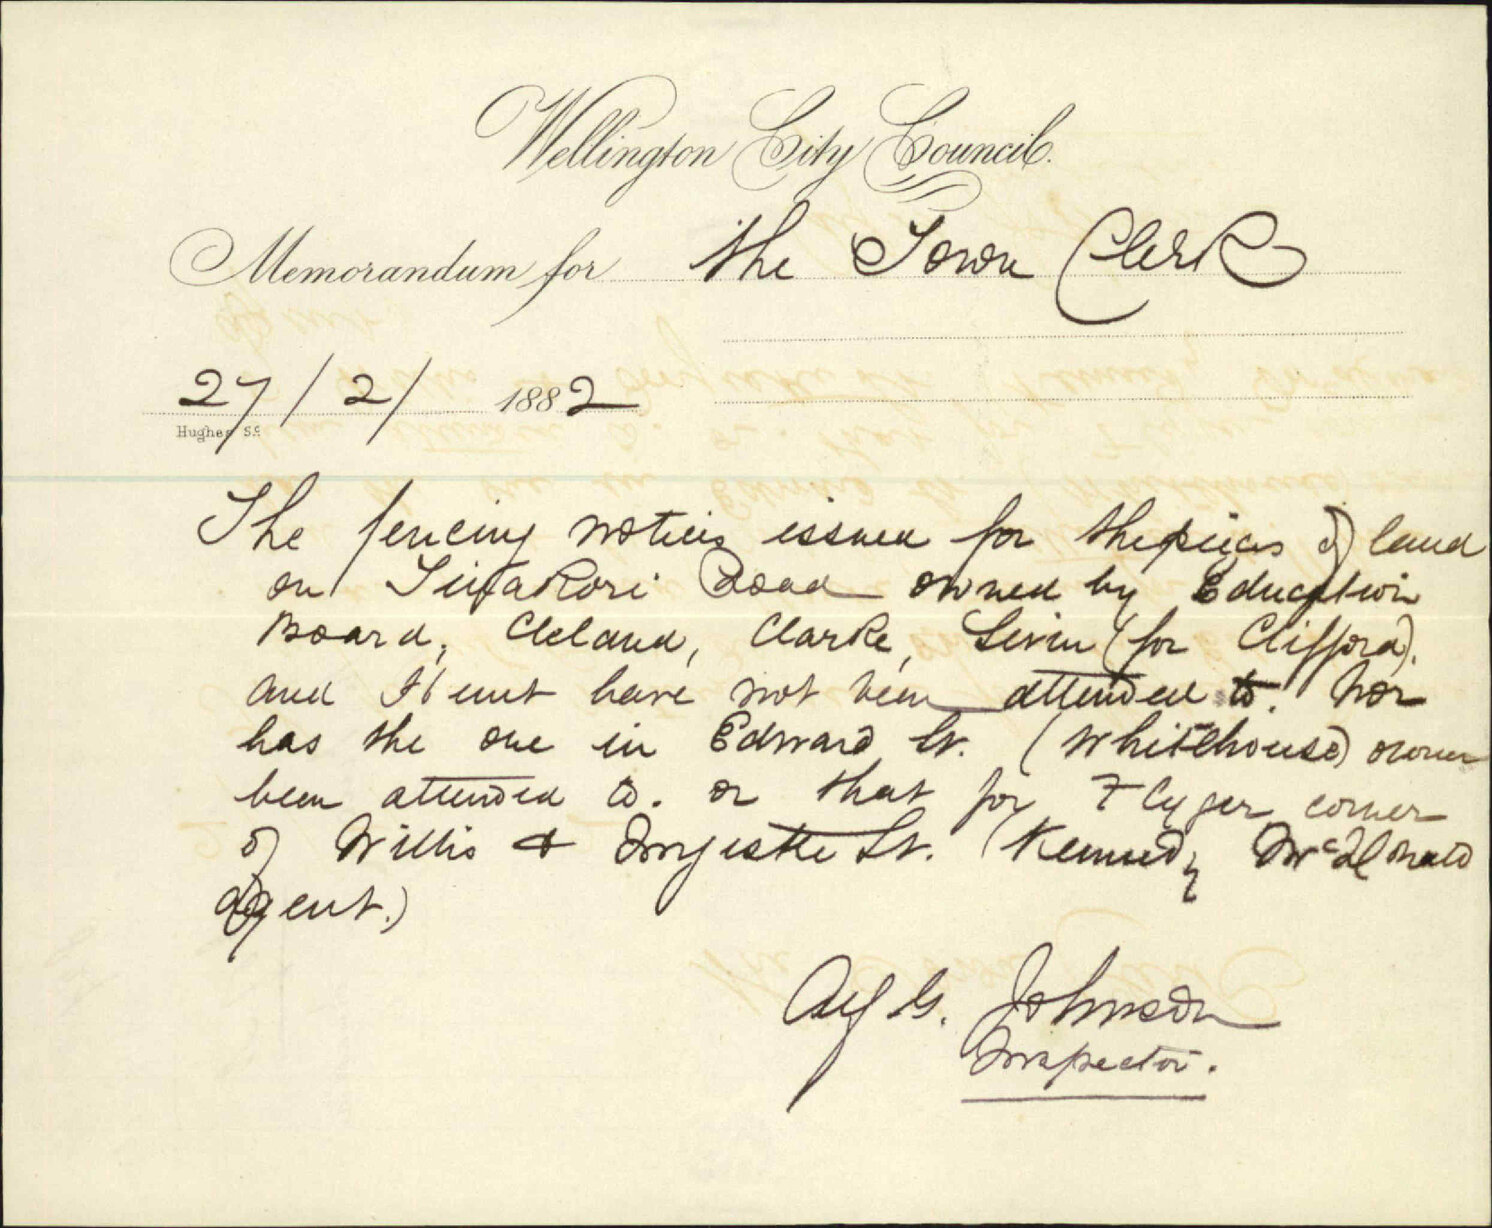 Wellington City Council.
Memorandum for the Town Clerk
27/2/ 1882
Hughes Sc
The fencing notices issued for the pieces of land
on Tinakori Road owned by Education
Board, Cleland, Clarke, Levin (for Clifford).
and Hunt have not been attended to. Nor
has the one in Edward St. (Whitehouse) owner
been attended to. or that for Flyger corner
of Willis & Ingestre St. (Kennedy McDonald
agent.)
Alf G. Johnson
Inspector.